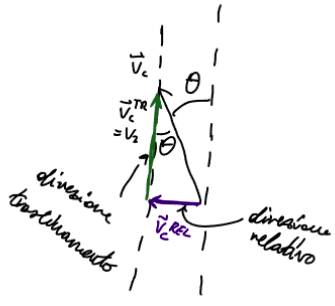 V⃗c
θ
V⃗c^TR
=V₂
θ̄
direzione
trascinamento
V⃗c^REL
direzione
relativo